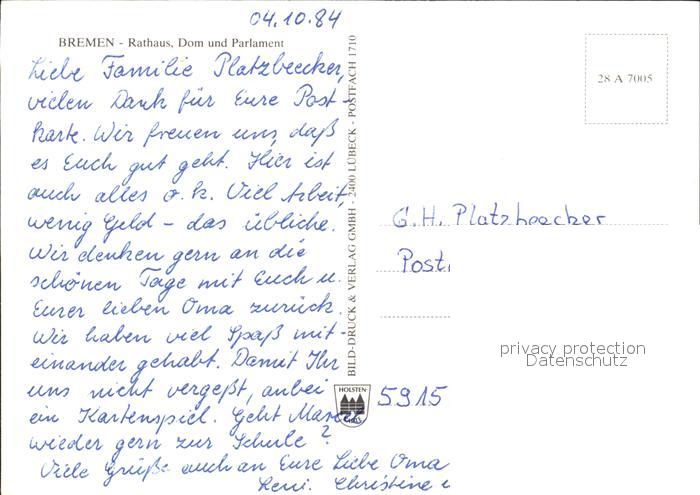 04.10.84
BREMEN - Rathaus, Dom und Parlament
Liebe Familie Platzbecker,
vielen Dank für Eure Post-
karte. Wir freuen uns, daß
es Euch gut geht. Hier ist
auch alles o.k. Viel Arbeit,
wenig Geld - das übliche.
Wir denken gern an die
schönen Tage mit Euch u.
Eurer lieben Oma zurück.
Wir haben viel Spaß mit-
einander gehabt. Damit Ihr
uns nicht vergeßt, anbei
ein Kartenspiel. Geht Marcel
wieder gern zur Schule?
Viele Grüße auch an Eure liebe Oma
Christine
BILD-DRUCK & VERLAG GMBH - 2400 LÜBECK - POSTFACH 1710
HOLSTEN
28 A 7005
G.H. Platzbecker
Post.
5915
privacy protection
Datenschutz